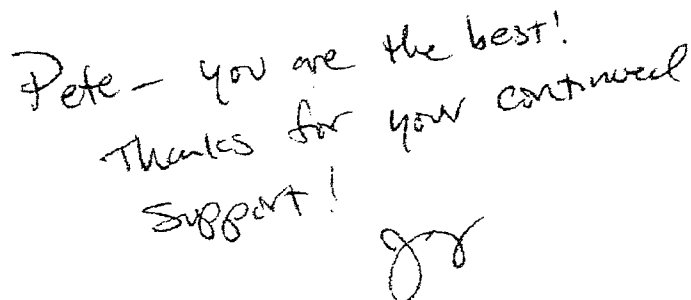 Pete – you are the best!
Thanks for your continued
support!